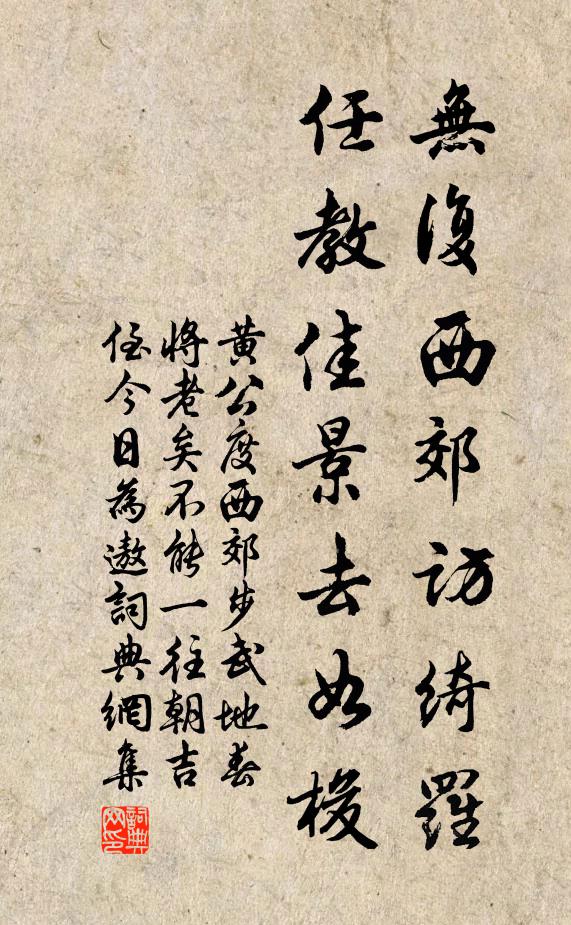 無復西郊訪綺羅
任教佳景去如梭
黃公度西郊步武地春
將老矣不能一往朝吉
侄今日為遨詞典網集
詞典網印